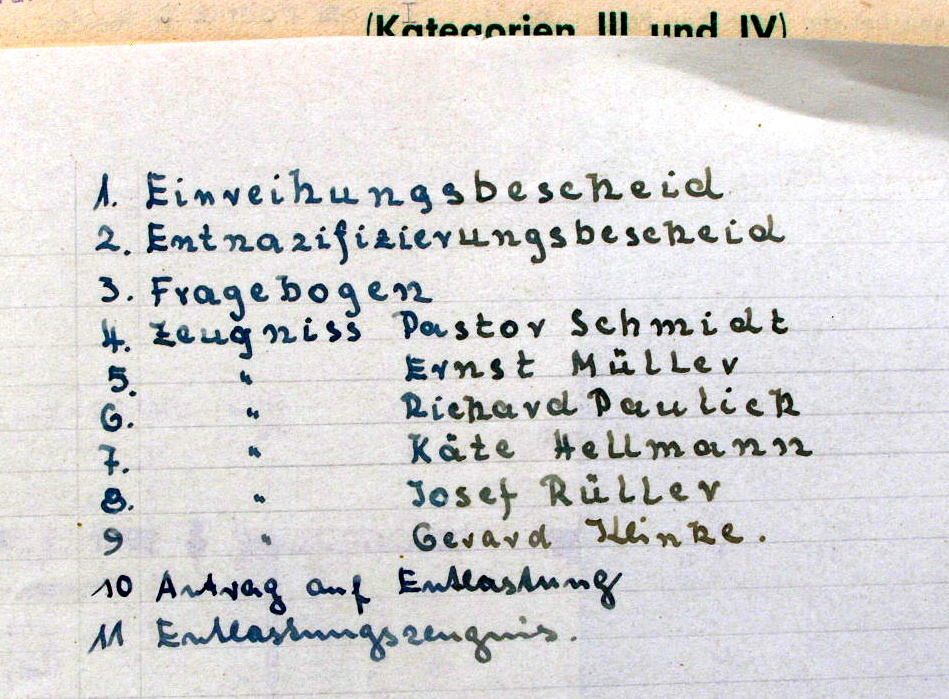 (Kategorien III und IV)
1. Einreihungsbescheid
2. Entnazifizierungsbescheid
3. Fragebogen
4. Zeugniss Pastor Schmidt
5. " Ernst Müller
6. " Richard Paulick
7. " Käte Hellmann
8. " Josef Rüller
9 " Gerard Klinke.
10 Antrag auf Entlastung
11 Entlastungszeugnis.